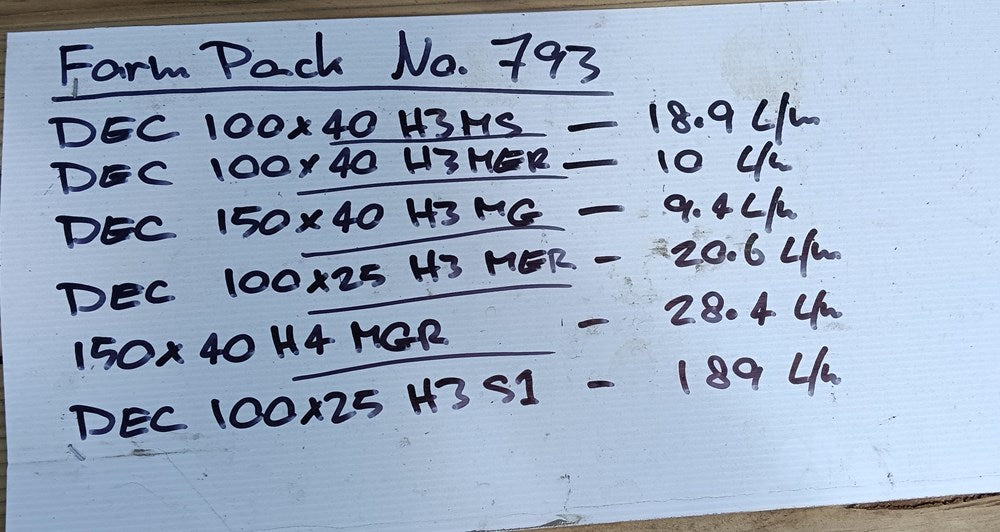 Farm Pack No. 793
DEC 100x40 H3 MS — 18.9 L/m
DEC 100x40 H3 MER — 10 L/m
DEC 150x40 H3 MG — 9.4 L/m
DEC 100x25 H3 MER - 20.6 L/m
150x40 H4 MGR - 28.4 L/m
DEC 100x25 H3 S1 - 189 L/m